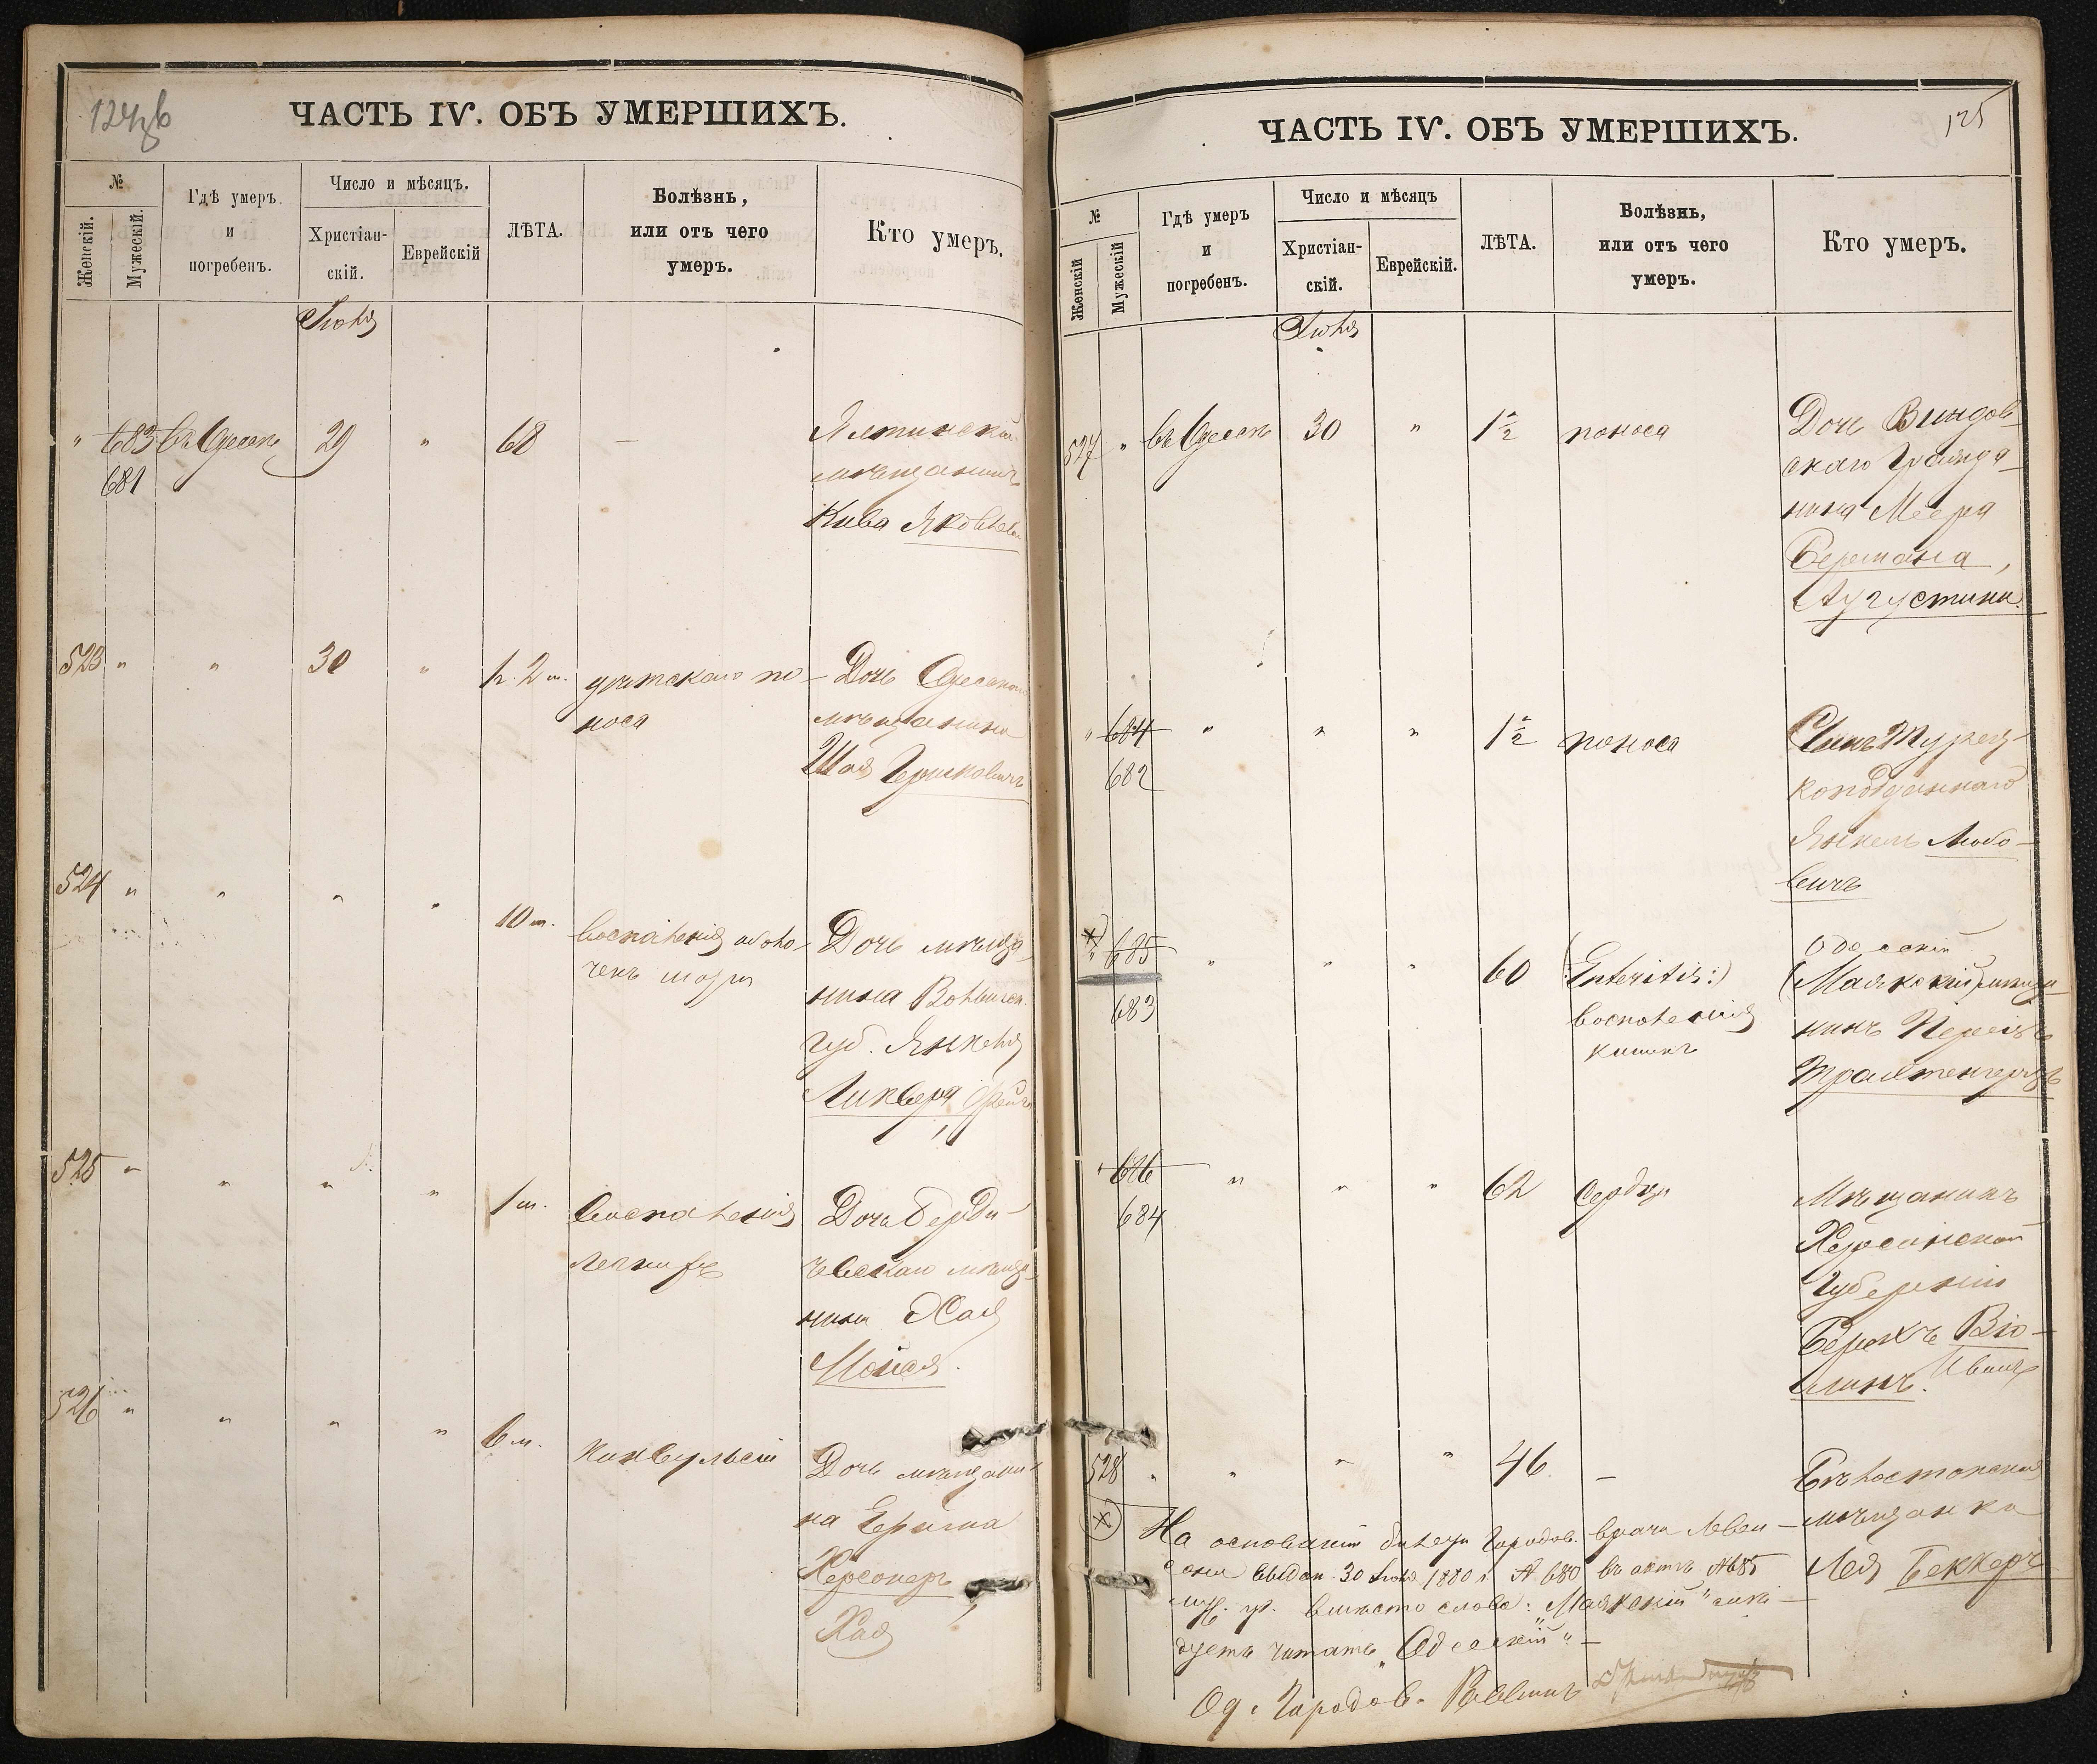 124об
ЧАСТЬ IV. ОБЪ УМЕРШИХЪ.
№
Женскій.
Мужескій.
Гдѣ умеръ
и
погребенъ.
Число и мѣсяцъ.
Христіан-
скій.
Еврейскій
ЛѢТА.
Болѣзнь,
или отъ чего
умеръ.
Кто умеръ.
Іюня
" 683 въ Одессѣ 29 " 68 — Ялтинскій
681
мѣщанинъ
Кива Яковлев
523 " " 30 " 1 г. 2 м. дѣтскаго по-
носа
Дочь Одесскаго
мѣщанина
Шая Гершковичъ
524 " " " " 10 м. воспаленія оболо-
чекъ мозга
Дочь мѣща-
нина Волынск.
губ. Янкеля
Ликвера
525 " " " " 1 м. воспаленія
легкихъ
Дочь Берди-
чевскаго мѣща-
нина Хая
Мойся.
526 " " " " 6 м. конвульсій
Дочь мѣщани-
на Герша
Херсонеръ,
Хая
125
ЧАСТЬ IV. ОБЪ УМЕРШИХЪ.
№
Женскій
Мужескій
Гдѣ умеръ
и
погребенъ.
Число и мѣсяцъ
Христіан-
скій.
Еврейскій.
ЛѢТА.
Болѣзнь,
или отъ чего
умеръ.
Кто умеръ.
Іюня
527 " въ Одессѣ 30 " 1½ поноса
Дочь Виндов-
скаго Гражда-
нина Меера
Бермана,
Аугустина.
" 684 " " " 1½ поноса
682
Сынъ Турец-
коподданнаго
Янкель Любо-
вичъ
" 685 " " " 60 (Enteritis:)
683
воспаленія
кишекъ
Одесскій
(Маякскій) мѣща-
нинъ Перецъ
" 686 " " " 62 сердца
684
Мѣщанинъ
Херсонской
Губерніи
Берко Вю-
528 " " " " 46 —
Бѣлостокская
мѣщанка
Лея Беккеръ
На основаніи билета Городов. врача Левен-
сона выдан. 30 Іюня 1880 г. № 680 въ актѣ №685
муж. п. вмѣсто слова: "Маякскій" слѣ-
дуетъ читать "Одесскій" —
Од. Городов. Раввинъ